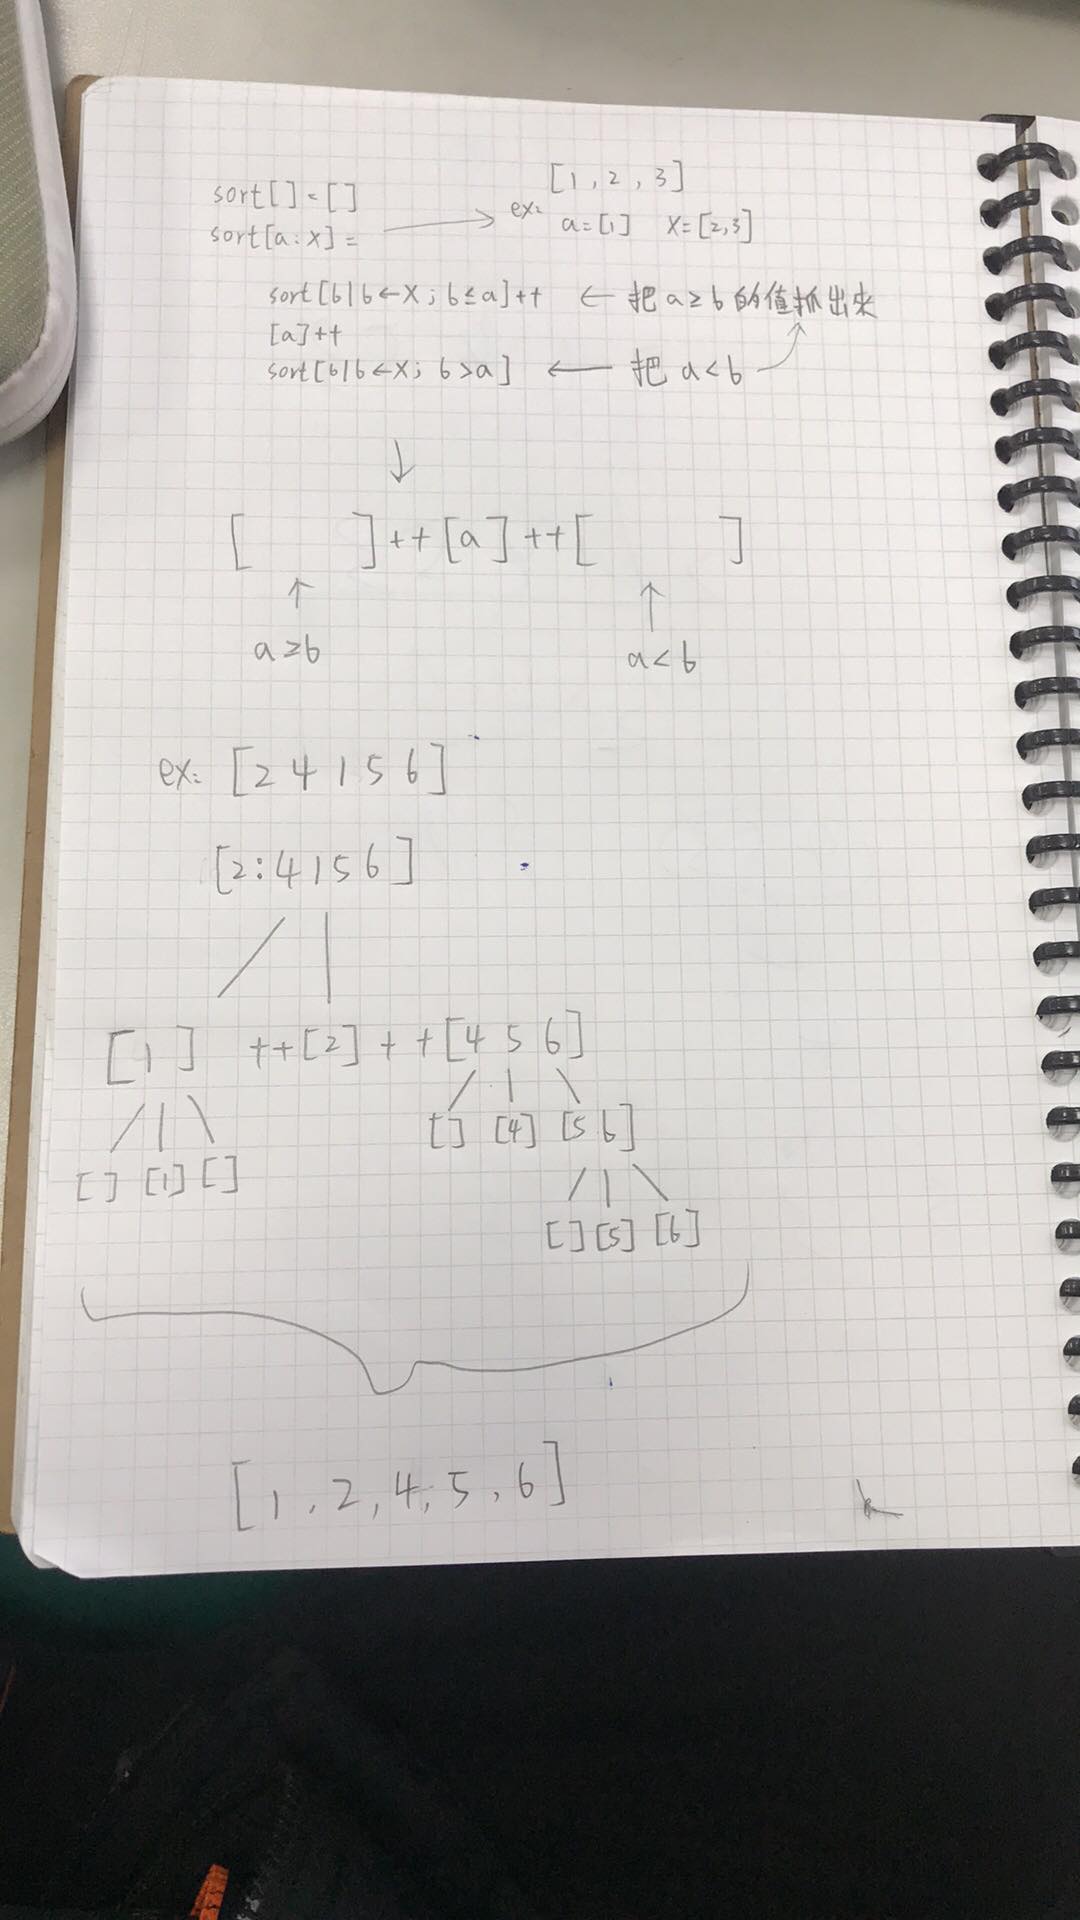 sort[] = []
sort[a:x] =
ex: [1, 2, 3]
a=[1] x=[2,3]
sort[b|b←x; b≤a]++ ← 把a≥b的值抓出來
[a]++
sort[b|b←x; b>a] ← 把 a<b
↓
[ ]++[a]++[ ]
↑ ↑
a≥b a<b
ex: [2 4 1 5 6]
[2:4 1 5 6]
[1] ++[2]++[4 5 6]
[] [4] [5 6]
[] [1] []
[] [5] [6]
[1, 2, 4, 5, 6]